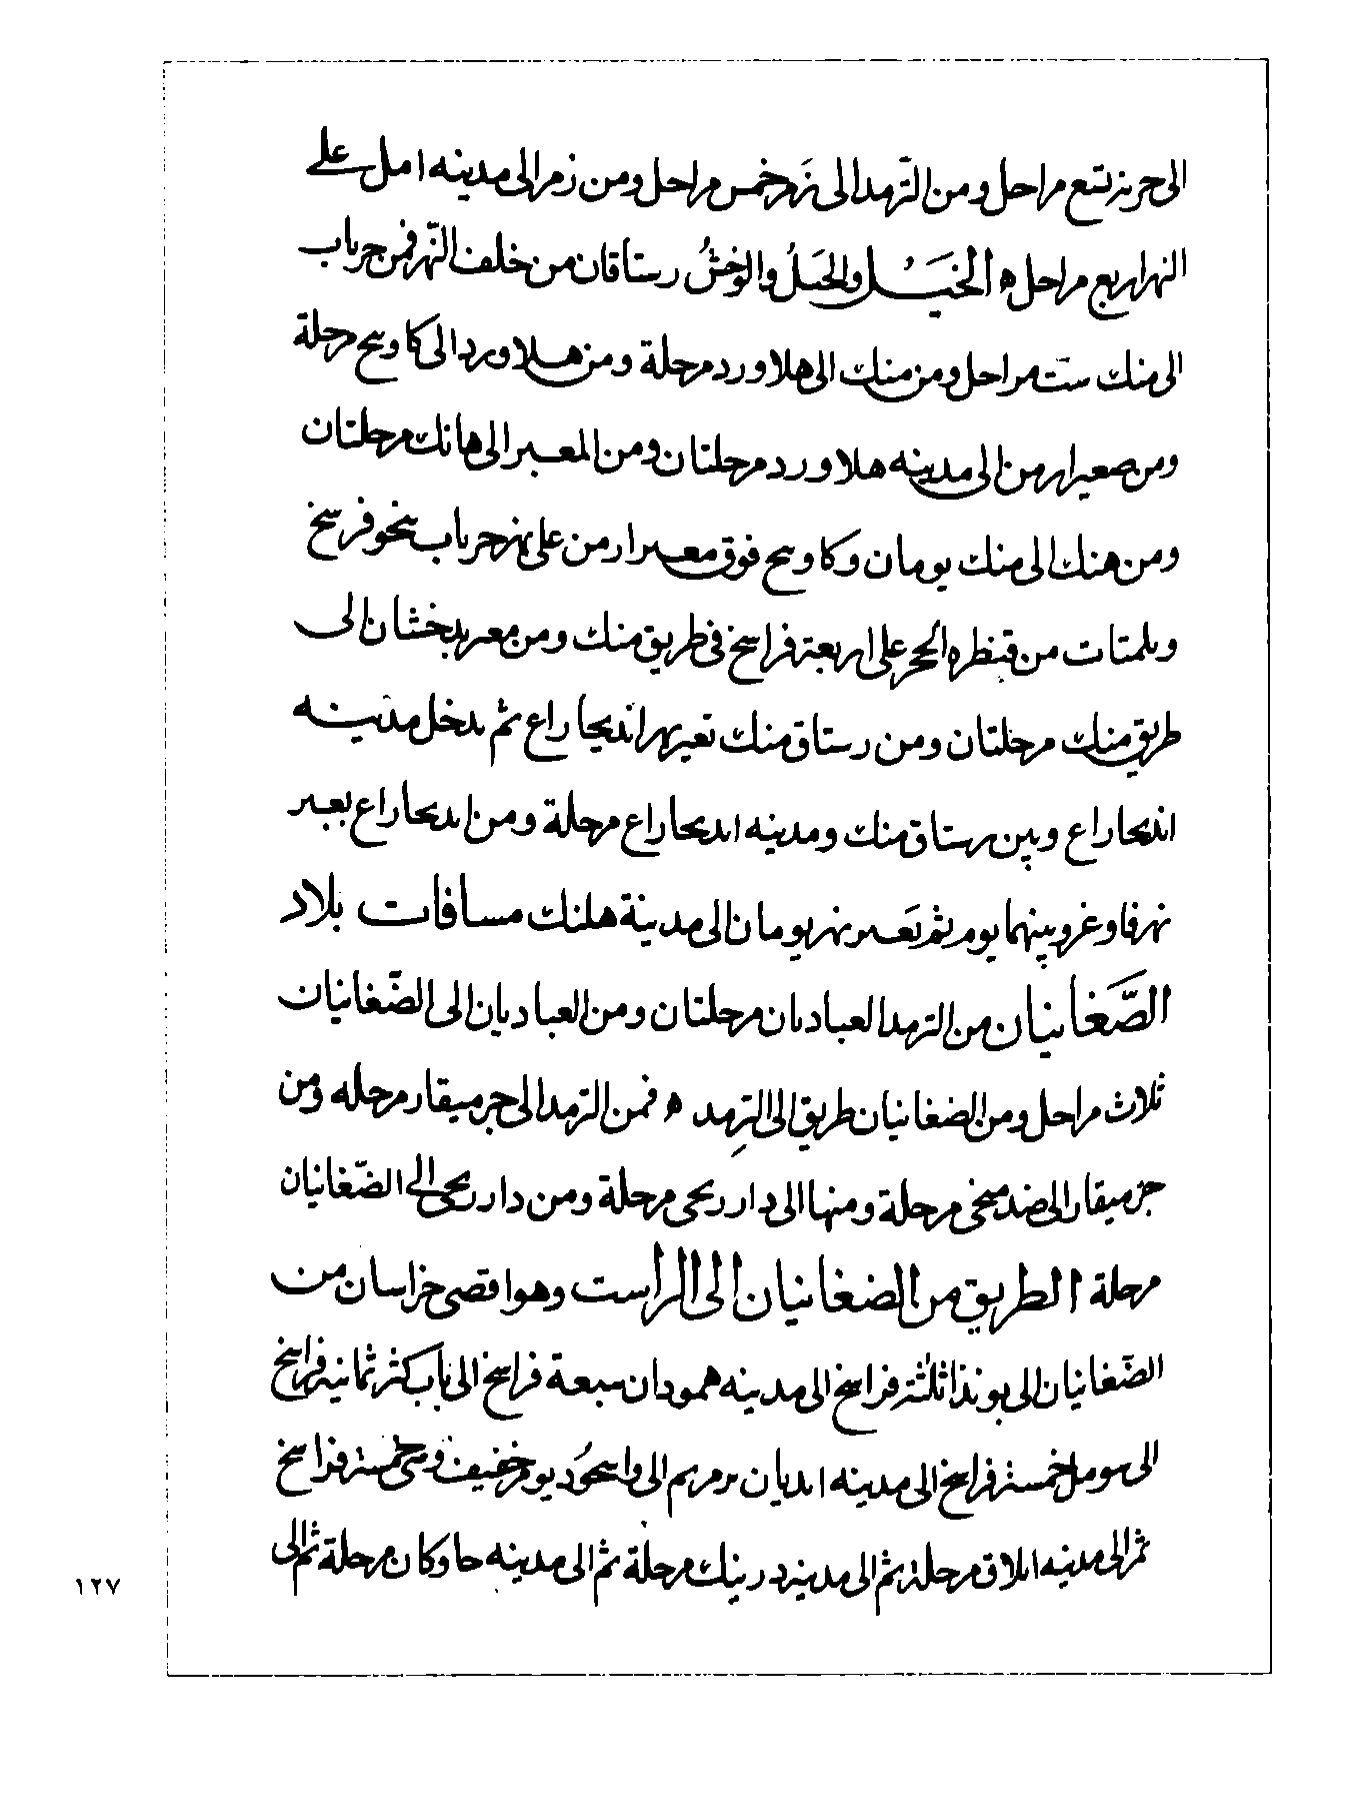 الى حربز تسع مراحل ومن الترمد الى زم خمس مراحل ومن زمر الى مدينه امل على
النهر اربع مراحل ه الختل والختل والوخش رستاقان من خلف النهر فمن جرياب
الى منك ست مراحل ومن منك الى هلاورد مرحلة ومن هلاورد الى كاوىىح مرحلة
ومن معبر ارمن الى مدينه هلاورد مرحلتان ومن المعبر الى هانك مرحلتان
ومن هنك الى منك يومان وكاوىىح فوق معىر ارمن على نهر جرياب نحو فرسخ
وىلمتات من قنطره الحجر على اربعة فراسخ في طريق منك ومن معبر بدخشان الى
طريق منك مرحلتان ومن رستاق منك تعبر نهر اندىجاراع ثم ىدخل مدينه
اندىجاراع وبين رستاق منك ومدينه اندىجاراع مرحلة ومن اندىجاراع ىعبر
نهر فاوغر وبينهما يوم ثم تعبر نهر يومان الى مدينة هلنك مسافات بلاد
الصغانيان من الترمد العباديان مرحلتان ومن العباديان الى الصغانيان
ثلاث مراحل ومن الصغانيان طريق الى الترمد ه فمن الترمد الى جرميقار مرحله ومن
جرميقار الى مرحلة ومنها الى دار زنجى مرحلة ومن دار زنجى الى الصغانيان
مرحلة الطريق من الصغانيان الى الراست وهو اقصى خراسان من
الصغانيان الى بوندا ثلثة فراسخ الى مدينه همودان سبعة فراسخ الى ىاب كثر ثمانية فراسخ
الى خمسة فراسخ الى مدينه اندىان الى واسحود يوم خمسة فراسخ
ثم الى مدينه ايلاق مرحلة ثم الى مدينه دربنك مرحلة ثم الى مدينه حاوكان مرحلة ثم الى
١٢٧